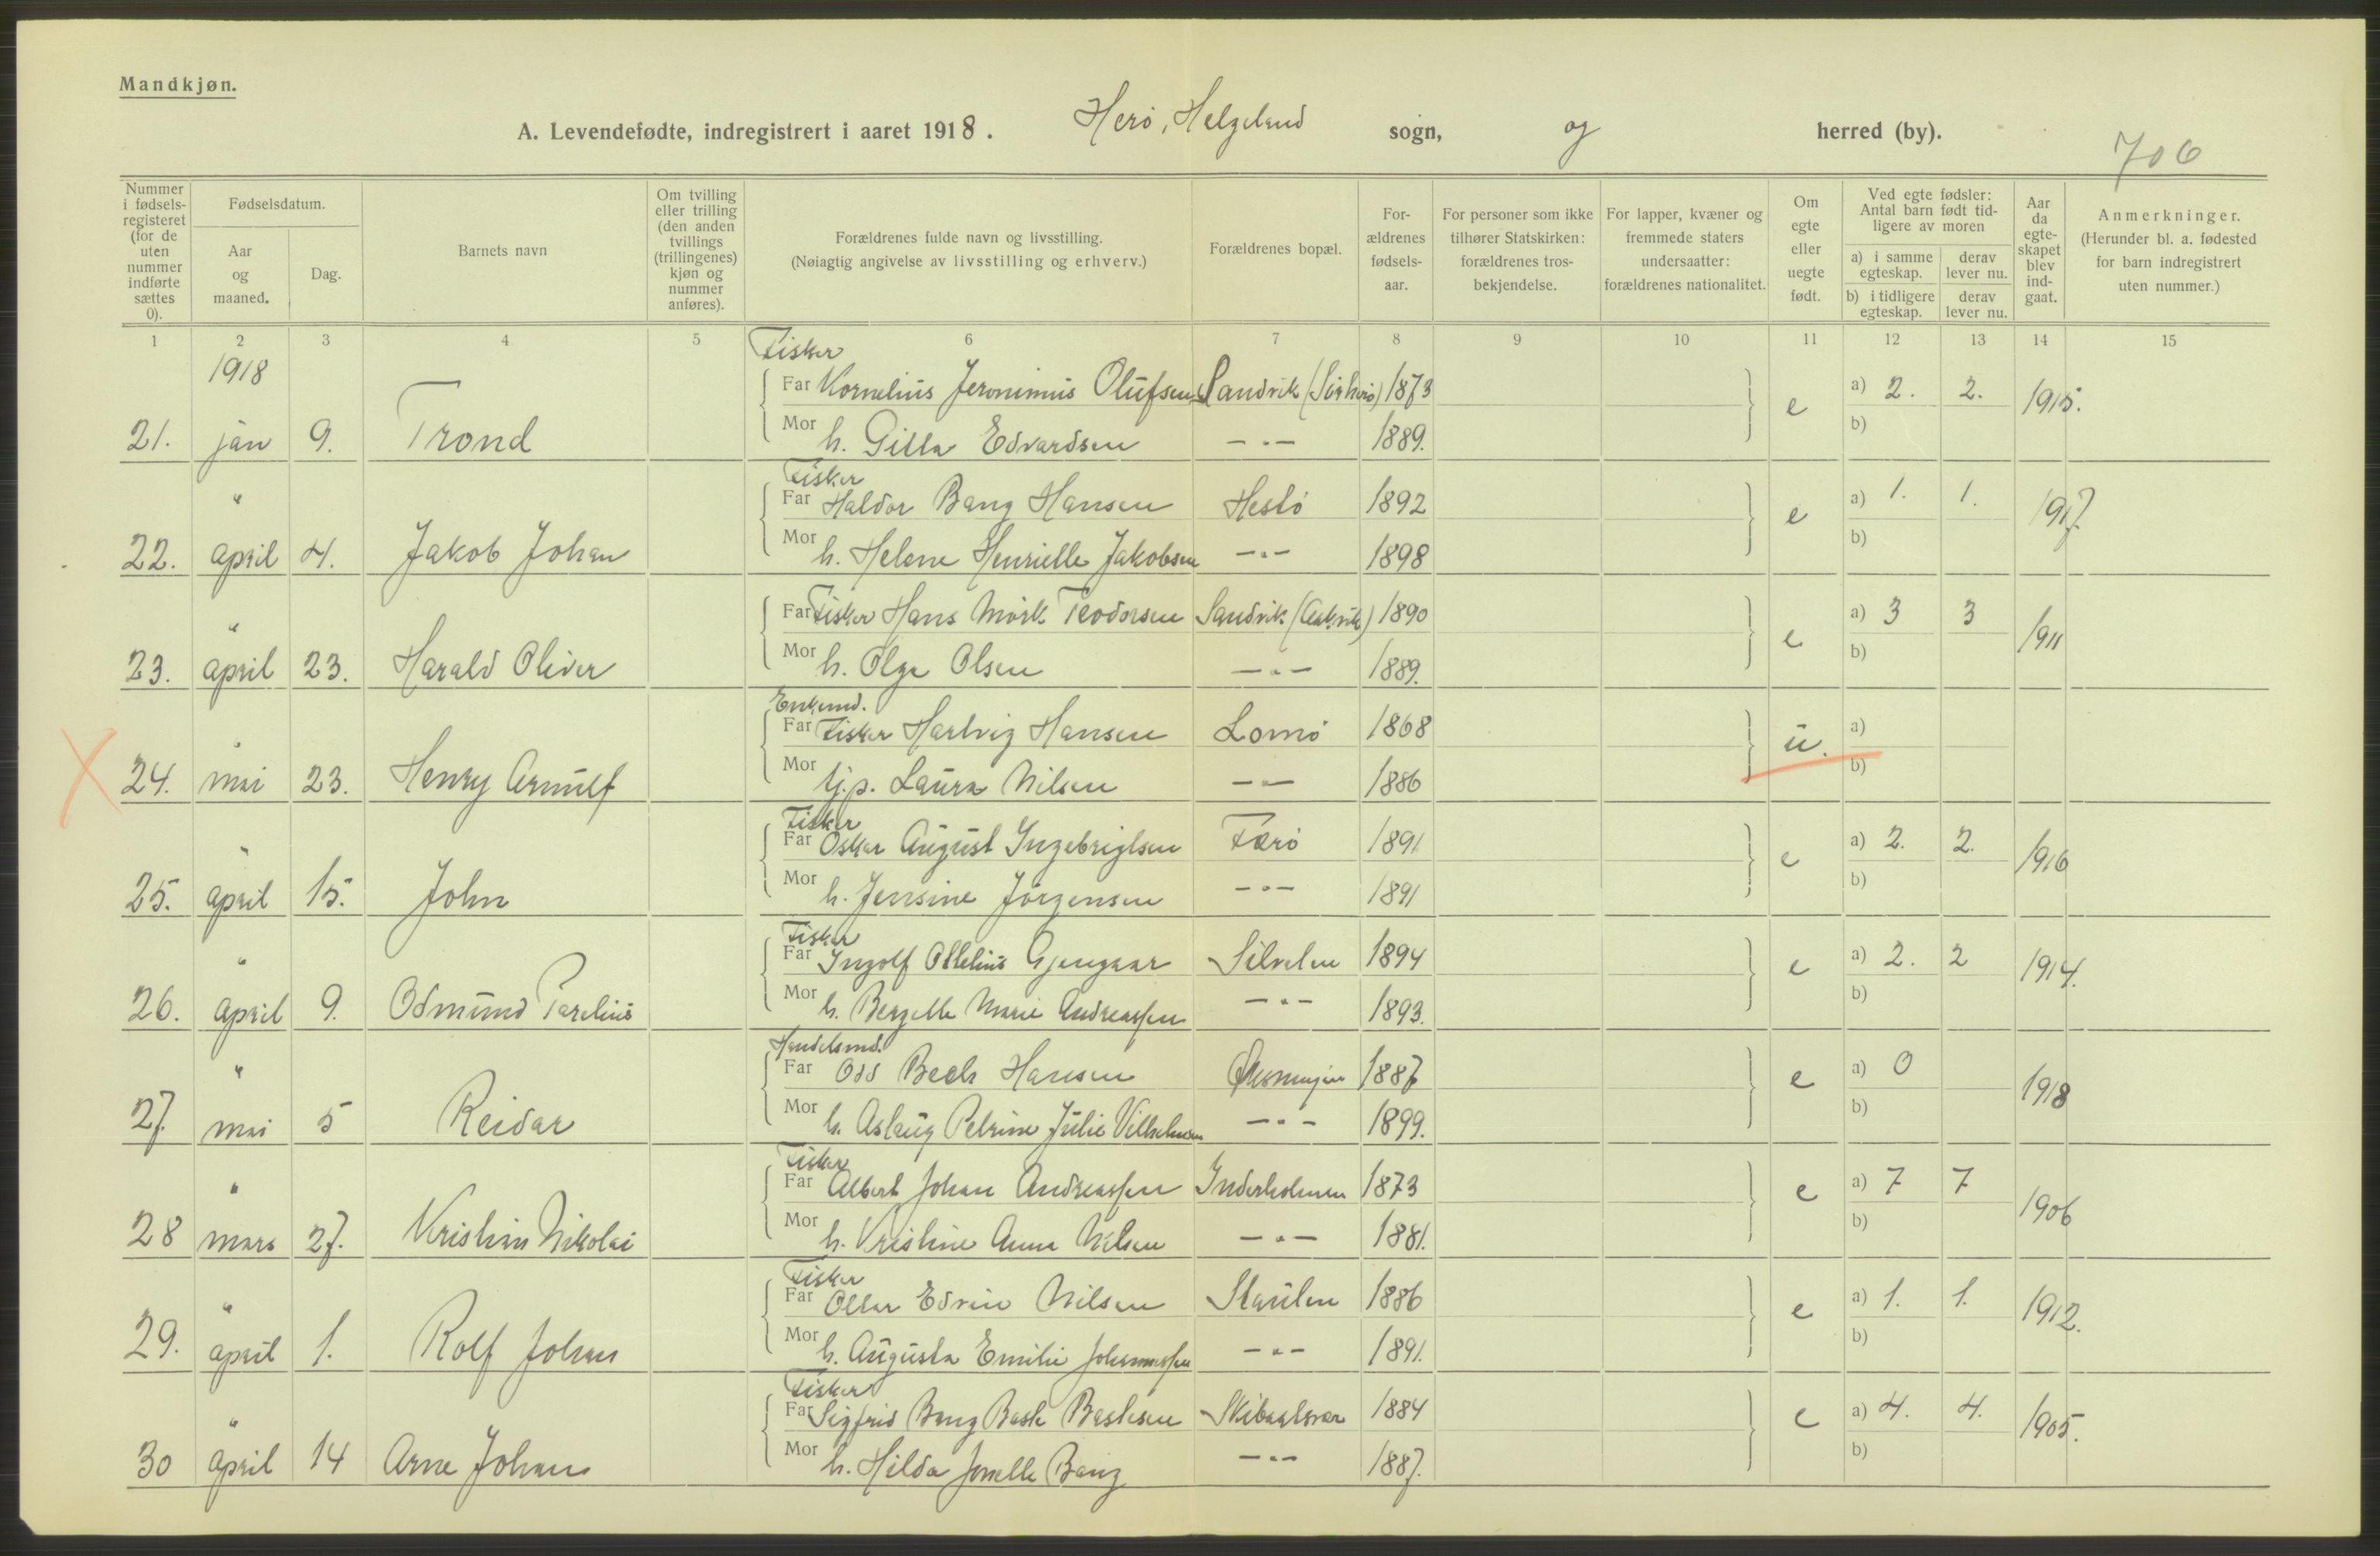 Mandkjøn.
A. Levendefødte, indregistrert i aaret 1918. Herö, Helgeland sogn, og herred (by).
706
Nummer i fødsels-registeret (for de uten nummer indførte sættes 0).
Fødselsdatum.
Aar og maaned.
Dag.
Barnets navn
Om tvilling eller trilling (den anden tvillings (trillingenes) kjøn og nummer anføres).
Forældrenes fulde navn og livsstilling.
(Nøiagtig angivelse av livsstilling og erhverv.)
Forældrenes bopæl.
For-ældrenes fødsels-aar.
For personer som ikke tilhører Statskirken: forældrenes tros-bekjendelse.
For lapper, kvæner og fremmede staters undersaatter: forældrenes nationalitet.
Om egte eller uegte født.
Ved egte fødsler: Antal barn født tid-ligere av moren
a) i samme egteskap.
derav lever nu.
b) i tidligere egteskap.
derav lever nu.
Aar da egte-skapet blev ind-gaat.
Anmerkninger.
(Herunder bl. a. fødested for barn indregistrert uten nummer.)
1 2 3 4 5 6 7 8 9 10 11 12 13 14 15
1918
Fisker
Far Kornelius Jeronimus Olufsen Sandvik (Sörherö) 1873 a) 2. 2.
21. jan 9. Trond Mor h. Gilla Edvardsen —"— 1889. e b) 1915.
Fisker
" Far Haldor Bang Hansen Heslö 1892 a) 1. 1.
22. april 4. Jakob Johan Mor h. Helene Henrielle Jakobsen —"— 1898 e b) 1917.
" Far Fisker Hans Mörk Teodorsen Sandvik 1890 a) 3 3
23. april 23. Harald Oliver Mor h. Olga Olsen —"— 1889. e b) 1911
Enkemd.
" Far Fisker Hartvig Hansen Lomö 1868 a)
X 24. mai 23. Henry Arnulf Mor tj.p. Laura Nilsen —"— 1886 u. b)
Fisker
" Far Oskar August Ingebrigtsen Færö 1891 a) 2. 2.
25. april 15. John Mor h. Jensine Jörgensen —"— 1891 e b) 1916
Fisker
" Far Ingolf Ottelius Gjengaar Silvalen 1894 a) 2. 2
26. april 9. Odmund Parelius Mor h. Bergette Marie Andreassen —"— 1893. e b) 1914.
Handelsmd.
" Far Odd Bech Hansen 1887 a) 0
27. mai 5 Reidar Mor h. Aslaug Petrine Julie Vilhelmsen —"— 1899. e b) 1918
Fisker
" Far Albert Johan Andreassen Inderholmen 1873 a) 7 7
28 mars 27. Kristian Nikolai Mor h. Kristine Anna Nilsen —"— 1881. e b) 1906
Fisker
" Far Ottar Edvin Nilsen Staulen 1886 a) 1. 1.
29. april 1. Rolf Johan Mor h. Augusta Emilie Johannessen —"— 1891. e b) 1912.
Fisker
" Far Sigfrid Bang Bask Baskesen Skibaalsvær 1884 a) 4. 4.
30 april 14 Arne Johan Mor h. Hilda Jonelle Bang —"— 1887. e b) 1905.